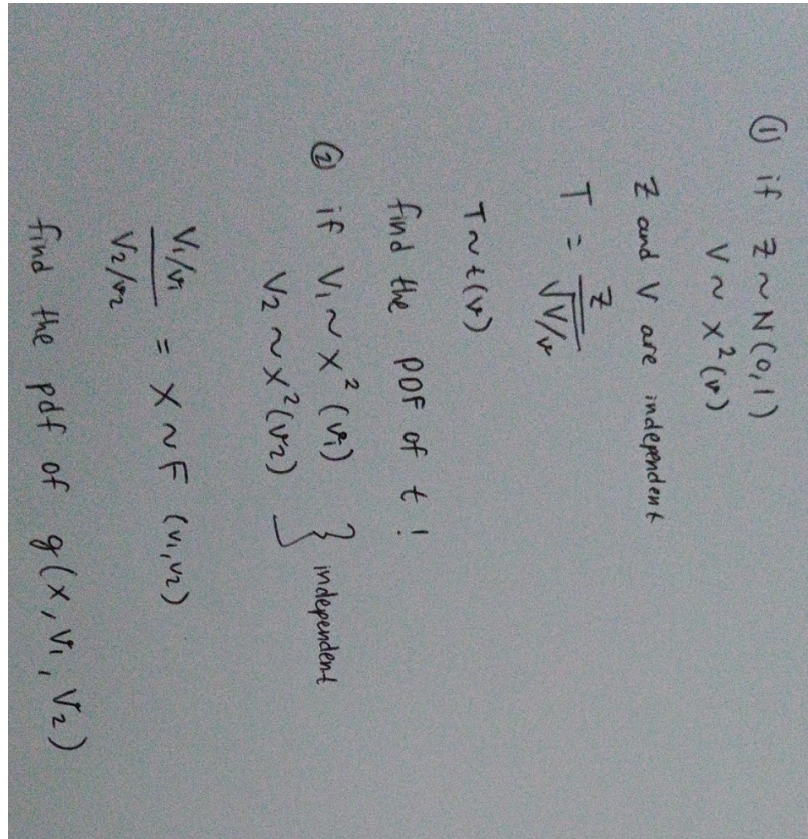 ① if Z ~ N(0,1)
V ~ X²(v)
Z and V are independent
T = Z / √V/v
T ~ t(v)
find the PDF of t !
② if V₁ ~ X²(v₁)
V₂ ~ X²(v₂) } independent
V₁/v₁ / V₂/v₂ = X ~ F (v₁,v₂)
find the pdf of g(x, v₁, v₂)